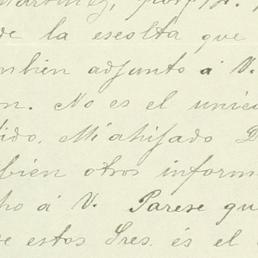 de la escolta que
tambien adjunto á V.
on. No es el unico
tido. Mi ahijado D
bien otros inform
ho á V. Parese qu
e estos Sres. és el